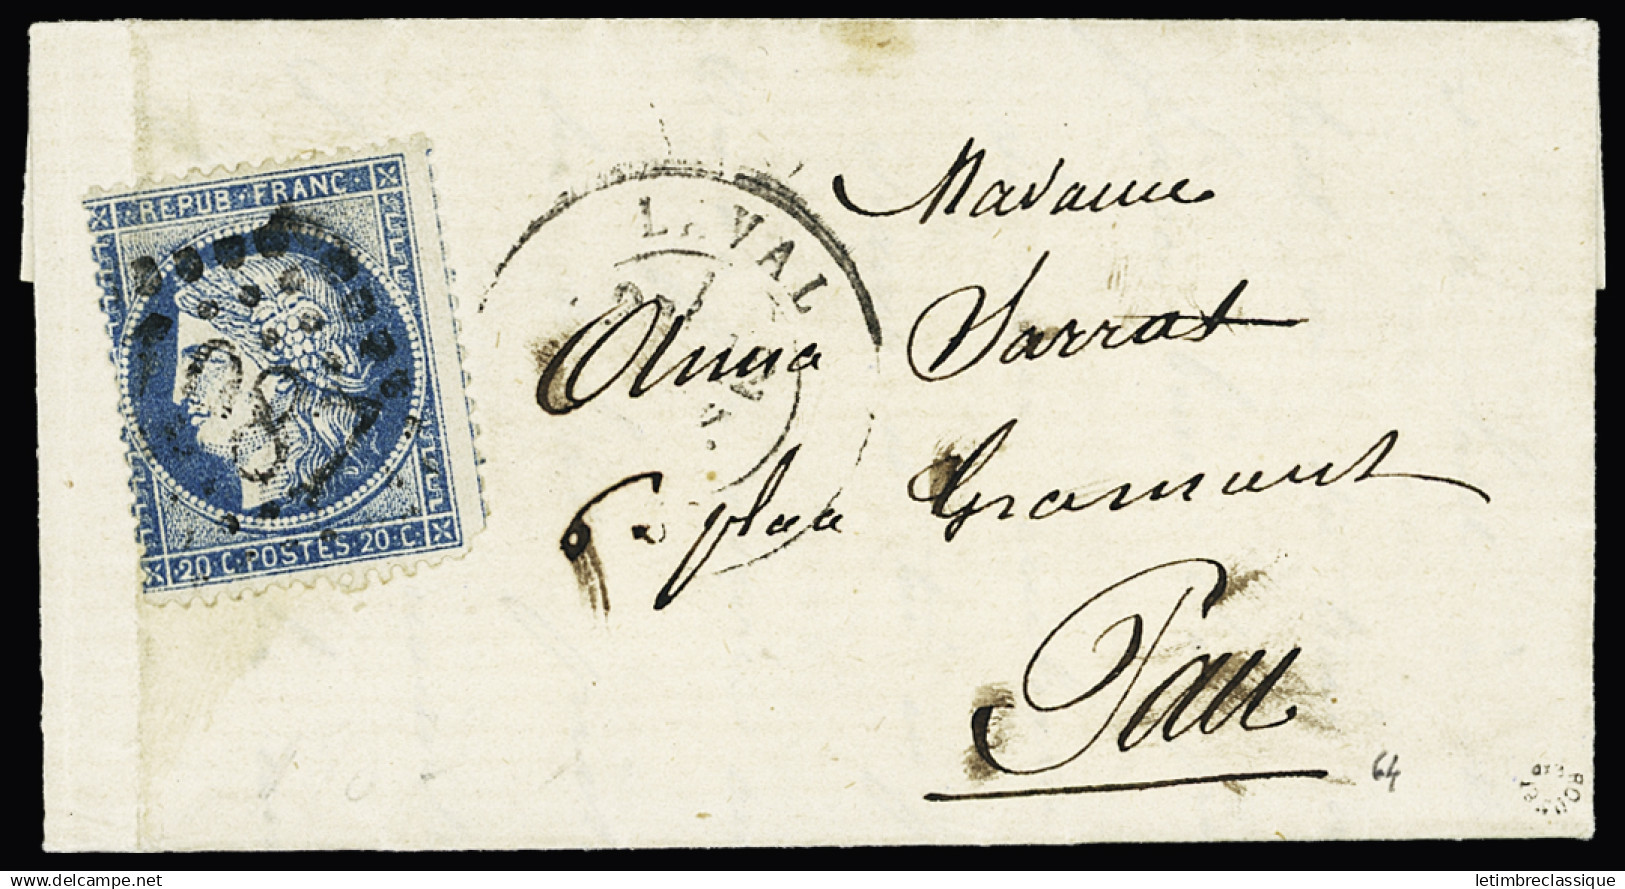 REPUB·FRANC·
20·C·POSTES·20·C·
LAVAL
Madame
Anna Sarrat
6 place Gramont
Pau
64
delcampe.net
letimbreclassique